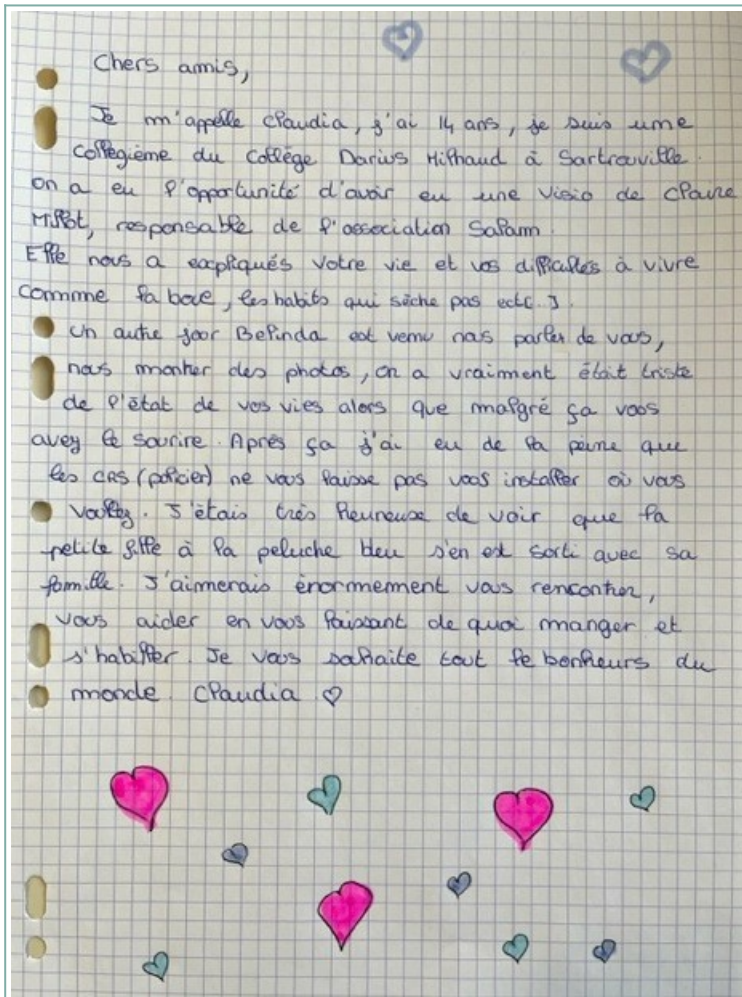 Chers amis,
Je m'appelle Claudia, j'ai 14 ans, je suis une
collegième du Collège Darius Milhaud à Sartrouville.
on a eu l'opportunité d'avoir eu une visio de Claire
Millot, responsable de l'association Salam.
Elle nous a expliqués votre vie et vos difficultés à vivre
comme la boue, les habits qui sèche pas ectc...
Un autre joor Belinda est venu nas parler de vous,
nous montrer des photos, on a vraiment était triste
de l'état de vos vies alors que malgré ça vous
avez le sourire. Après ça j'ai eu de la peine que
les CRS (policier) ne vous laisse pas vous installer où vous
voulez. J'étais très heureuse de voir que la
petite fille à la peluche bleu s'en est sorti avec sa
famille. J'aimerais énormement vous rencontrer,
vous aider en vous laissant de quoi manger et
s'habiller. Je vous souhaite tout le bonheurs du
monde. Claudia ♡